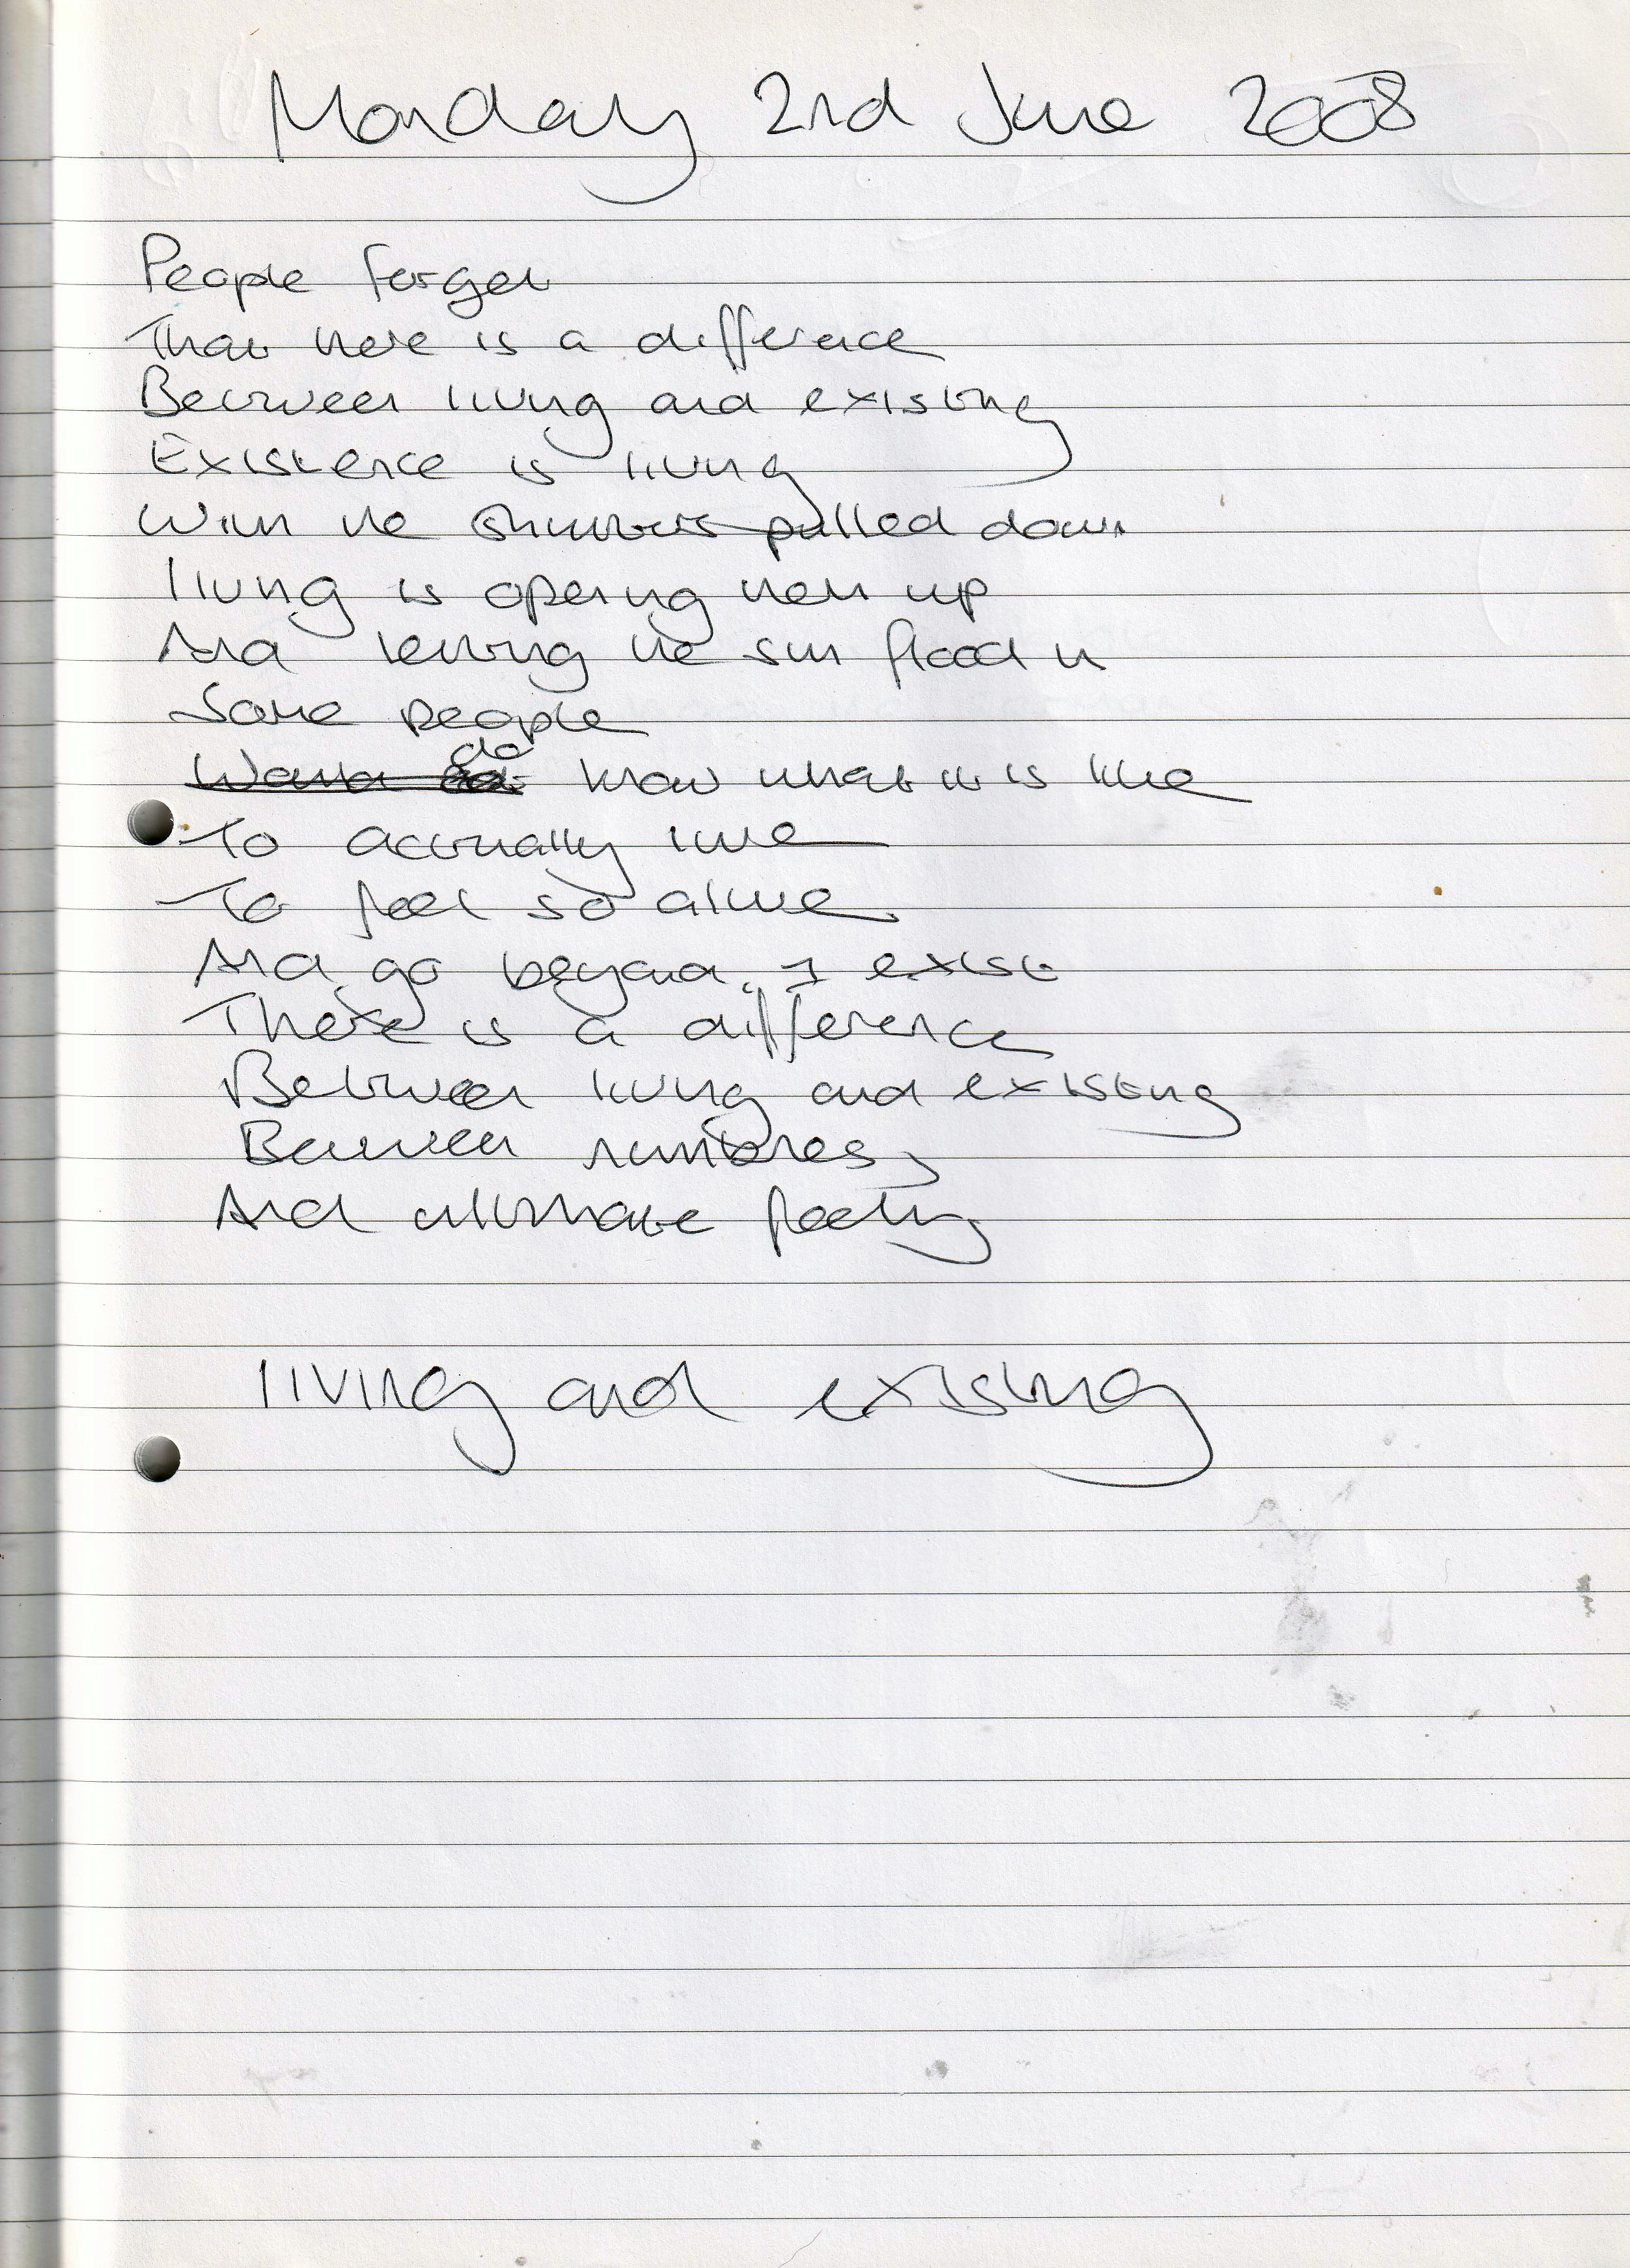 Monday 2nd June 2008
People forget
That there is a difference
Between living and existing
Existence is living
With the shutters pulled down
living is opening them up
And letting the sun flood in
Some people
do
know what it is like
To actually live
To feel so alive
And go beyond "I exist"
There is a difference
Between living and existing
Between numbness
And ultimate feeling
living and existing